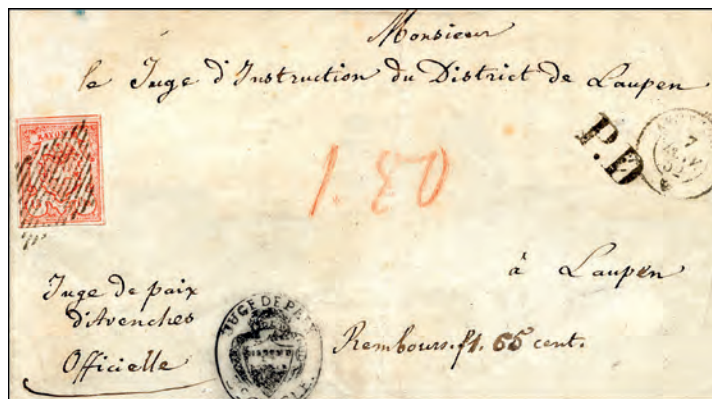 Monsieur
le Juge d'Instruction du District de Laupen
RAYON
P.D
7
1.80
à Laupen
Juge de paix
d'Avenches
Officielle
JUGE DE PAIX
Rembours. f 1. 65 cent.